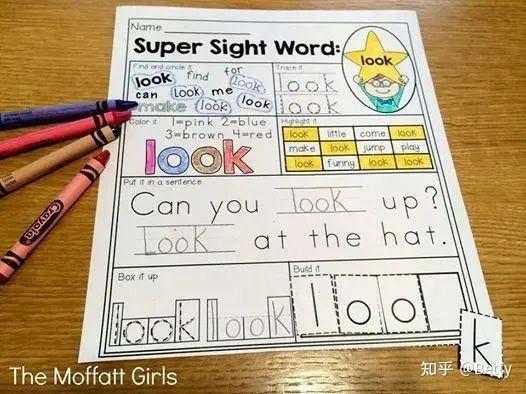 Name
Super Sight Word:
look
Find and circle it
look find for look
can look me look
make look
Trace it
look
look
Color it 1=pink 2=blue
3=brown 4=red
look
Highlight it
look little come look
make look jump play
look funny look look
Put it in a sentence
Can you look up?
Look at the hat.
Box it up
look look
Build it
l o o
k
Crayola
The Moffatt Girls
知乎 @Betty